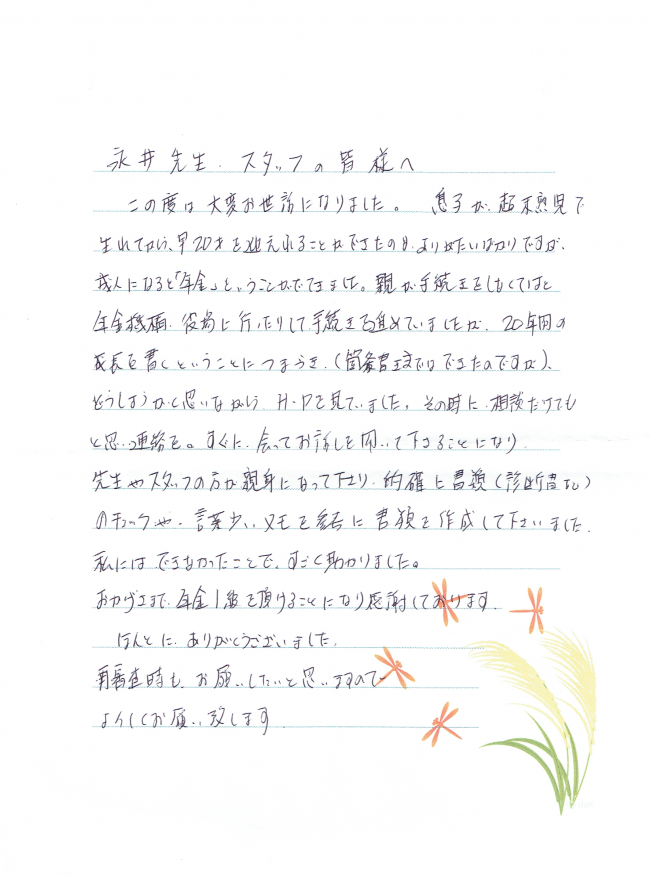 永井先生、スタッフの皆様へ
この度は大変お世話になりました。 息子が、超未熟児で
生れてから、早20才を迎えれることができたのは、よりがたいばかりですが、
成人になると「年金」ということがでてきました。親が手続きをしなくてはと
年金機構、役場に行ったりして手続きを進めていましたが、20年間の
成長を書くということにつまづき、(箇条書きまではできたのですが)、
どうしようかと思いながら、H・Pを見ていました。その時に、相談だけでも
と思い連絡を。すぐに、会ってお話しを聞いて下さることになり、
先生やスタッフの方が親身になって下さり、的確に書類(診断書など)
のチェックや、言葉少いメモを参考に書類を作成して下さいました。
私にはできなかったことで、すごく助かりました。
おかげさまで、年金1級を頂けることになり感謝しております。
ほんとに、ありがとうございました。
再審査時も、お願いしたいと思いますので
よろしくお願い致します